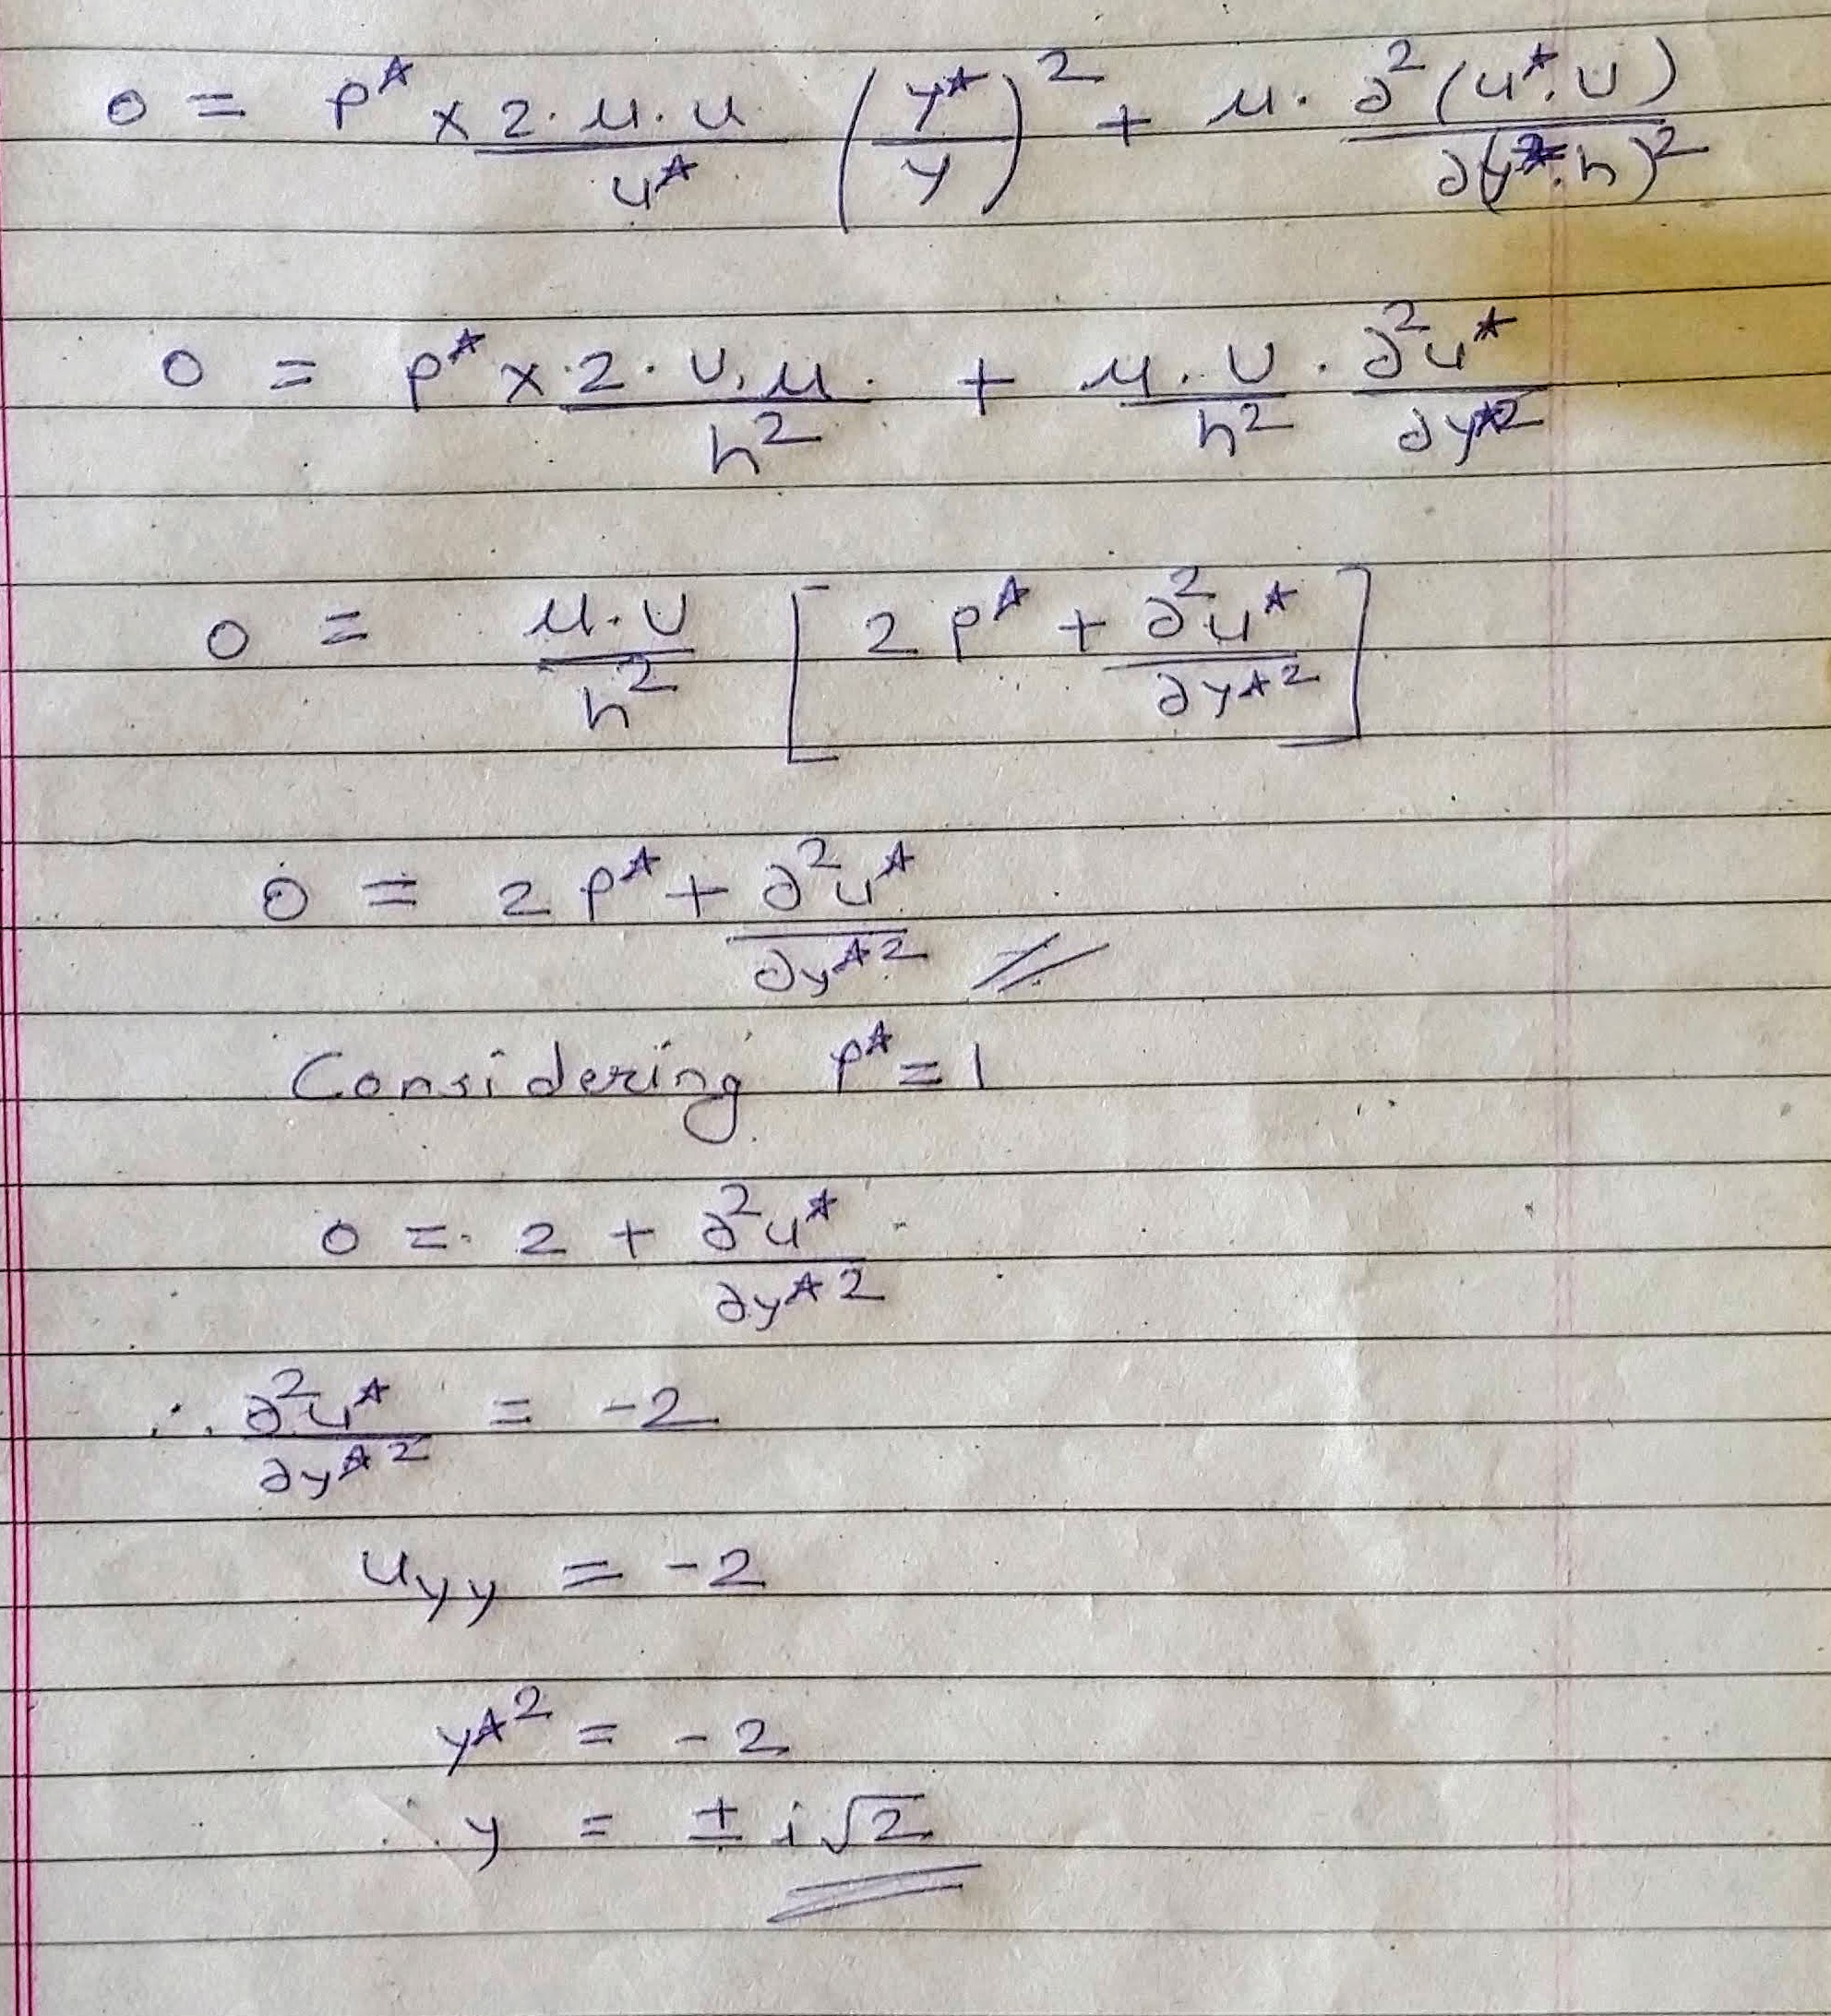 0 = P* × 2·μ·u / u* (y*/y)² + μ· ∂²(u*·U) / ∂(y*·h)²
0 = P* × 2·U·μ / h² + μ·U / h² · ∂²u* / ∂y*²
0 = μ·U / h² [2P* + ∂²u* / ∂y*²]
0 = 2P* + ∂²u* / ∂y*²
Considering P* = 1
0 = 2 + ∂²u* / ∂y*²
∴ ∂²u* / ∂y*² = -2
uyy = -2
y*² = -2
∴ y = ± i√2